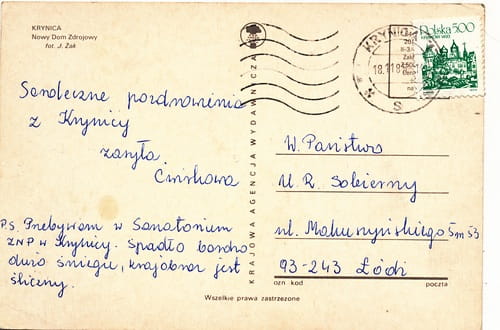 KRYNICA
Nowy Dom Zdrojowy
fot. J. Żak
Serdeczne pozdrowienia
z Krynicy
zasyła
P.S. Przebywam w Sanatorium
ZNP w Krynicy. Spadło bardzo
dużo śniegu, krajobraz jest
śliczny.
KRAJOWA AGENCJA WYDAWNICZA
KRYNICA
18.11.8
S
Polska 5.00
W. Państwo
U. R. Sobierny
ul. Makuszyńskiego 5 m 53
93-243 Łódź
ozn kod
poczta
Wszelkie prawa zastrzeżone